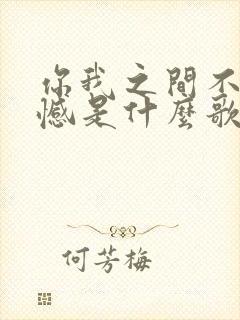 你我之間不
憾是什麼歌
何芳梅